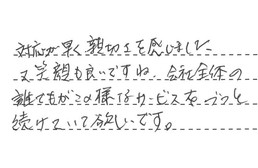 対応が早く親切さを感じました
又笑顔も良いですね、会社全体の
誰でもがこの様なサービスをずっと
続けていて欲しいです。